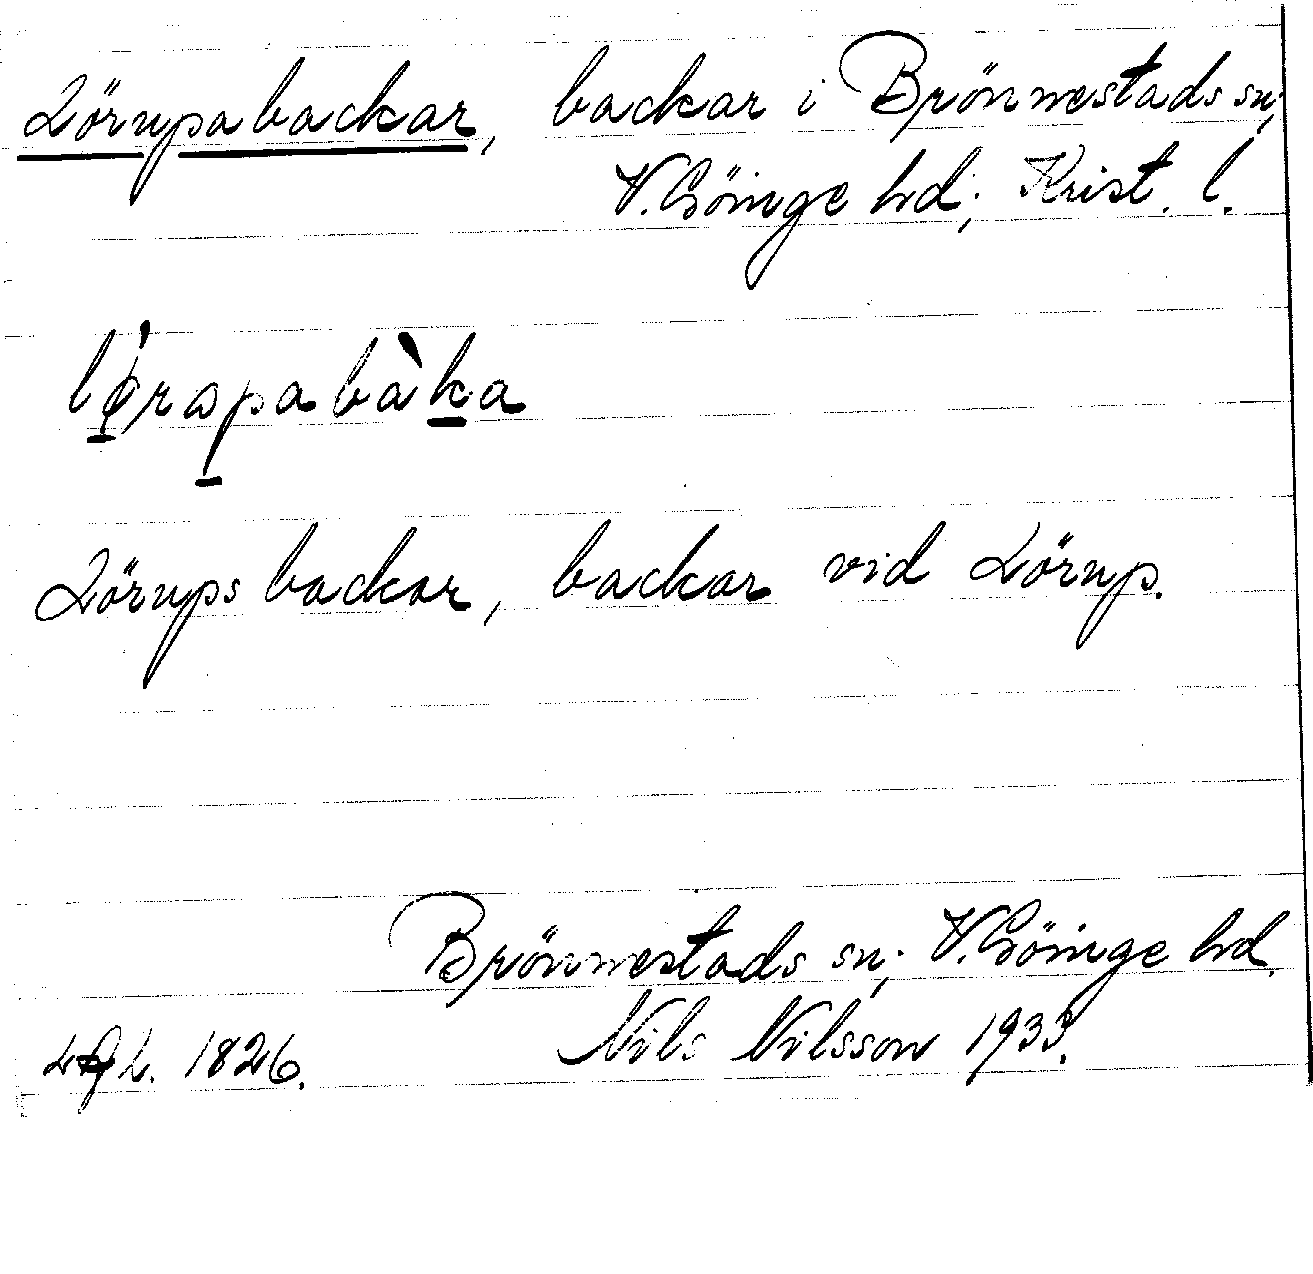 Lörupabackar, backar i Brönnestads sn,
V. Göinge hd; Krist. l.
lǿ̱rapabàḵa
Lörups backar, backar vid Lörup.
Brönnestads sn; V. Göinge hd.
1826. Nils Nilsson 1933.